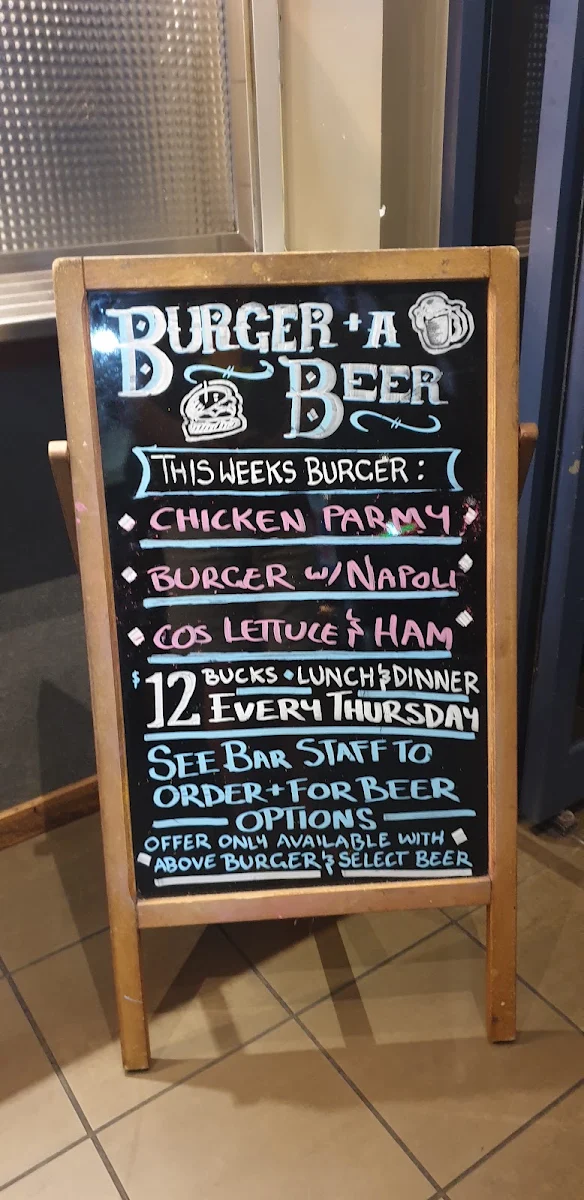 BURGER + A
BEER
THIS WEEKS BURGER :
CHICKEN PARMY
BURGER w/ NAPOLI
COS LETTUCE & HAM
$12 BUCKS • LUNCH & DINNER
EVERY THURSDAY
SEE BAR STAFF TO
ORDER + FOR BEER
OPTIONS
OFFER ONLY AVAILABLE WITH
ABOVE BURGER & SELECT BEER